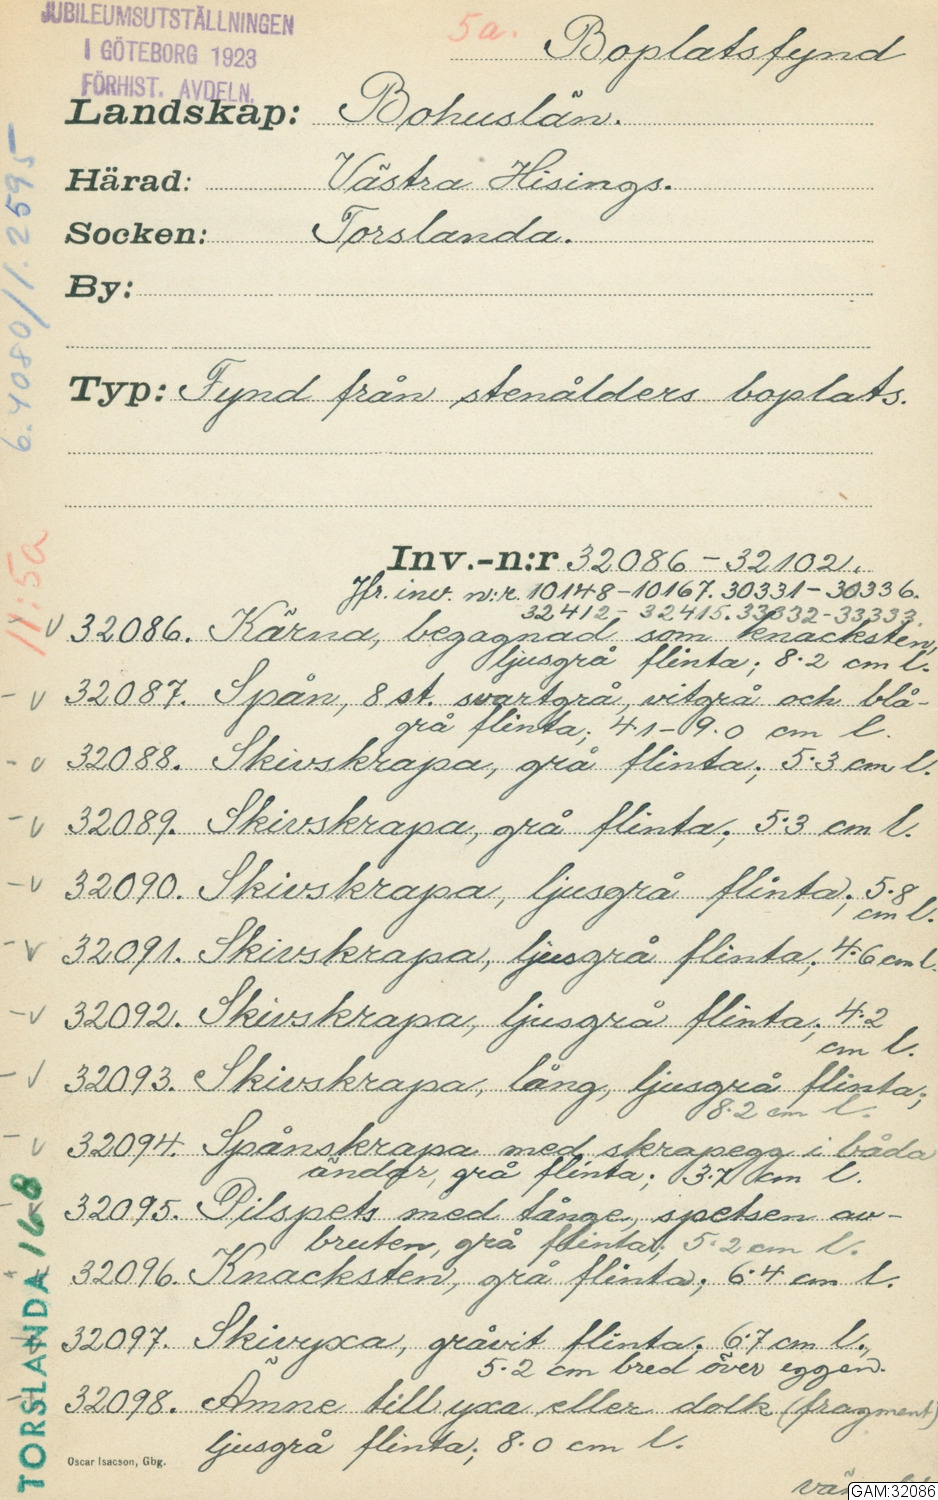 JUBILEUMSUTSTÄLLNINGEN
I GÖTEBORG 1923
FÖRHIST. AVDELN.
5a.
Boplatsfynd
Landskap: Bohuslän.
Härad: Västra Hisings.
Socken: Torslanda.
By:
Typ: Fynd från stenålders boplats.
Inv.-n:r 32086-32102.
Jfr. inv. n:r. 10148-10167. 30331-30336.
32412- 32415. 33332-33333.
V 32086. Kärna, begagnad som knacksten,
ljusgrå flinta; 8.2 cm l.
- v 32087. Spån, 8 st. svartgrå, vitgrå och blå-
grå flinta; 4.1-9.0 cm l.
- v 32088. Skivskrapa, grå flinta; 5.3 cm l.
- v 32089. Skivskrapa, grå flinta; 5.3 cm l.
- v 32090. Skivskrapa, ljusgrå flinta; 5.8
cm l.
- v 32091. Skivskrapa, ljusgrå flinta; 4.6 cm l.
- v 32092. Skivskrapa, ljusgrå flinta; 4.2
cm l.
- v 32093. Skivskrapa, lång, ljusgrå flinta;
8.2 cm l.
- v 32094. Spånskrapa med skrapegg i båda
ändar, grå flinta; 3.7 cm l.
32095. Pilspets med tånge, spetsen av-
bruten, grå flinta; 5.2 cm l.
32096. Knacksten, grå flinta; 6.4 cm l.
32097. Skivyxa, gråvit flinta; 6.7 cm l.,
5.2 cm bred över eggen.
32098. Ämne till yxa eller dolk (fragment)
ljusgrå flinta; 8.0 cm l.
Oscar Isacson, Gbg.
GAM:32086
6.4080/1.2595
11:5a
TORSLANDA 168